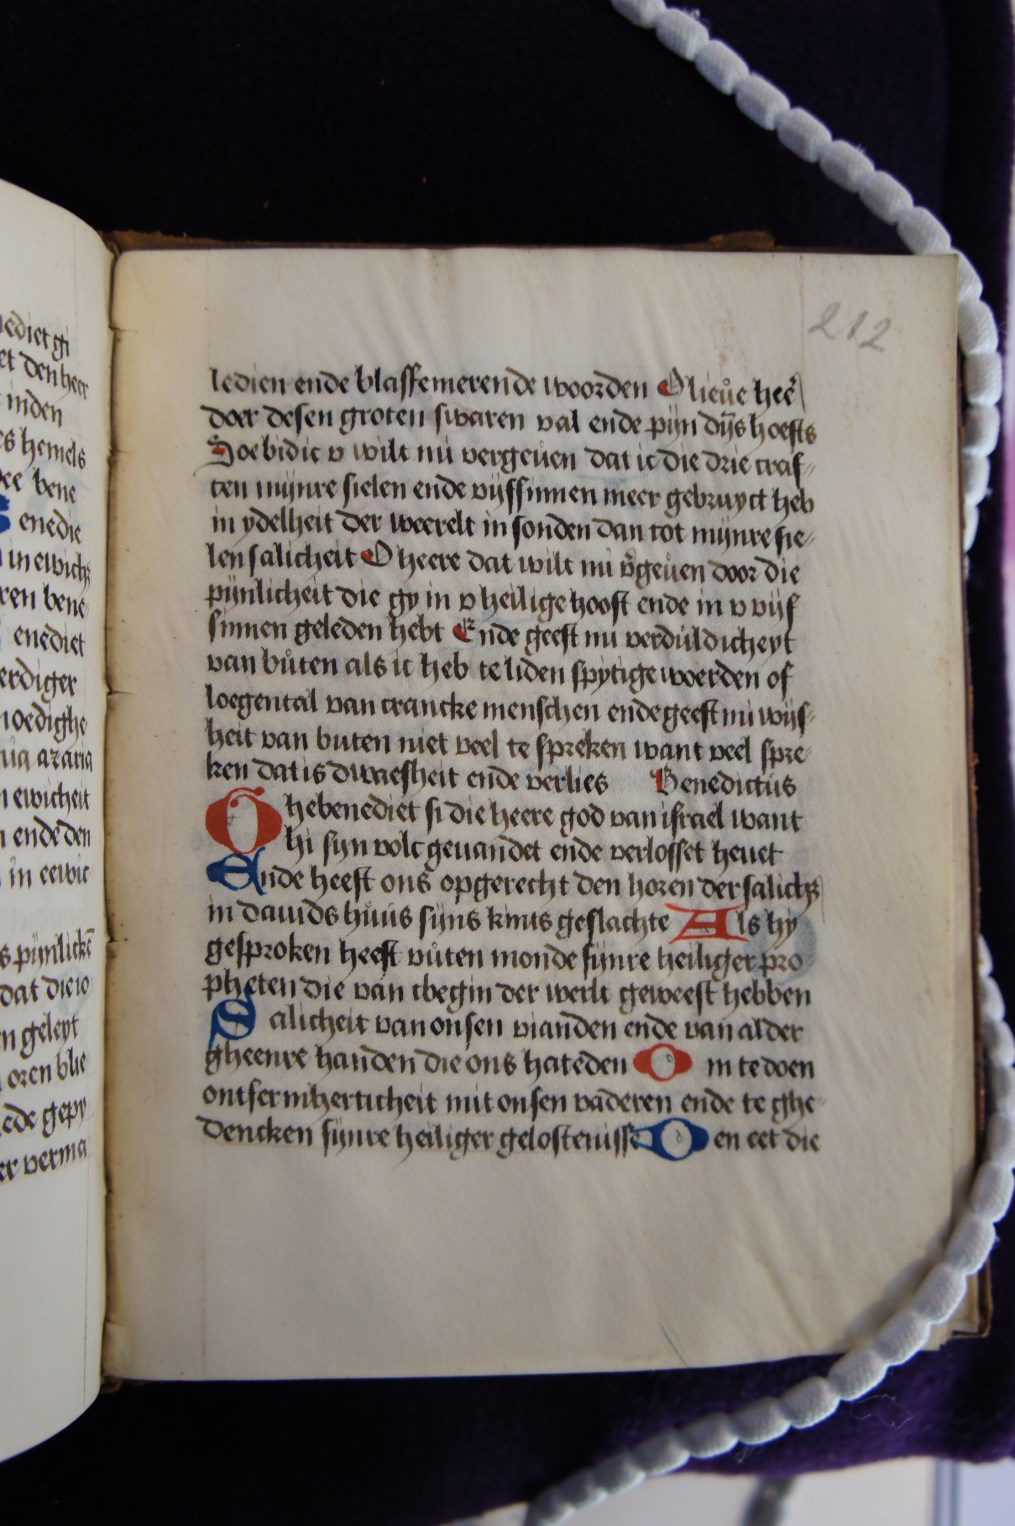 nediet gi
et den heer
inden
es hemels
ree bene
enedie
in ewich
ren bene
enediet
erdiger
noedighe
nia azaria
n ewicheit
n ende den
in eewic
s pijnlickē
dat die io
n geleyt
oren blie
ede gepy
er verma
212
ledien ende blasfemerende woorden O lieue heē
doer desen groten swaren val ende pijn dijs hoefts
Soe bidic v wilt mi vergeuen dat ic die drie craf-
ten mijnre sielen ende vijf sinnen meer gebruyct heb
in ydelheit der weerelt in sonden dan tot mijnre sie-
len salicheit O heere dat wilt mi v̄geuen door die
pijnlicheit die gy in v heilige hooft ende in v vijf
sinnen geleden hebt Ende geeft mi verduldicheyt
van buten als ic heb te liden spytige woerden of
loegental van crancke menschen ende geeft mi wijs-
heit van buten niet veel te spreken want veel spre
ken dat is dwaesheit ende verlies Benedictus
Ghebenediet si die heere god van israel want
hi sijn volc geuandet ende verlosset heuet
Ende heeft ons opgerecht den horen der salich
in dauids huus sijns kints geslachte Als hy
gesproken heeft vuten monde sijnre heiliger pro
pheten die van tbegin der werlt geweest hebben
Salicheit van onsen vianden ende van alder
gheenre handen die ons hateden Om te doen
ontfermherticheit mit onsen vaderen ende te ghe
dencken sijnre heiliger gelostenisse Den eet die